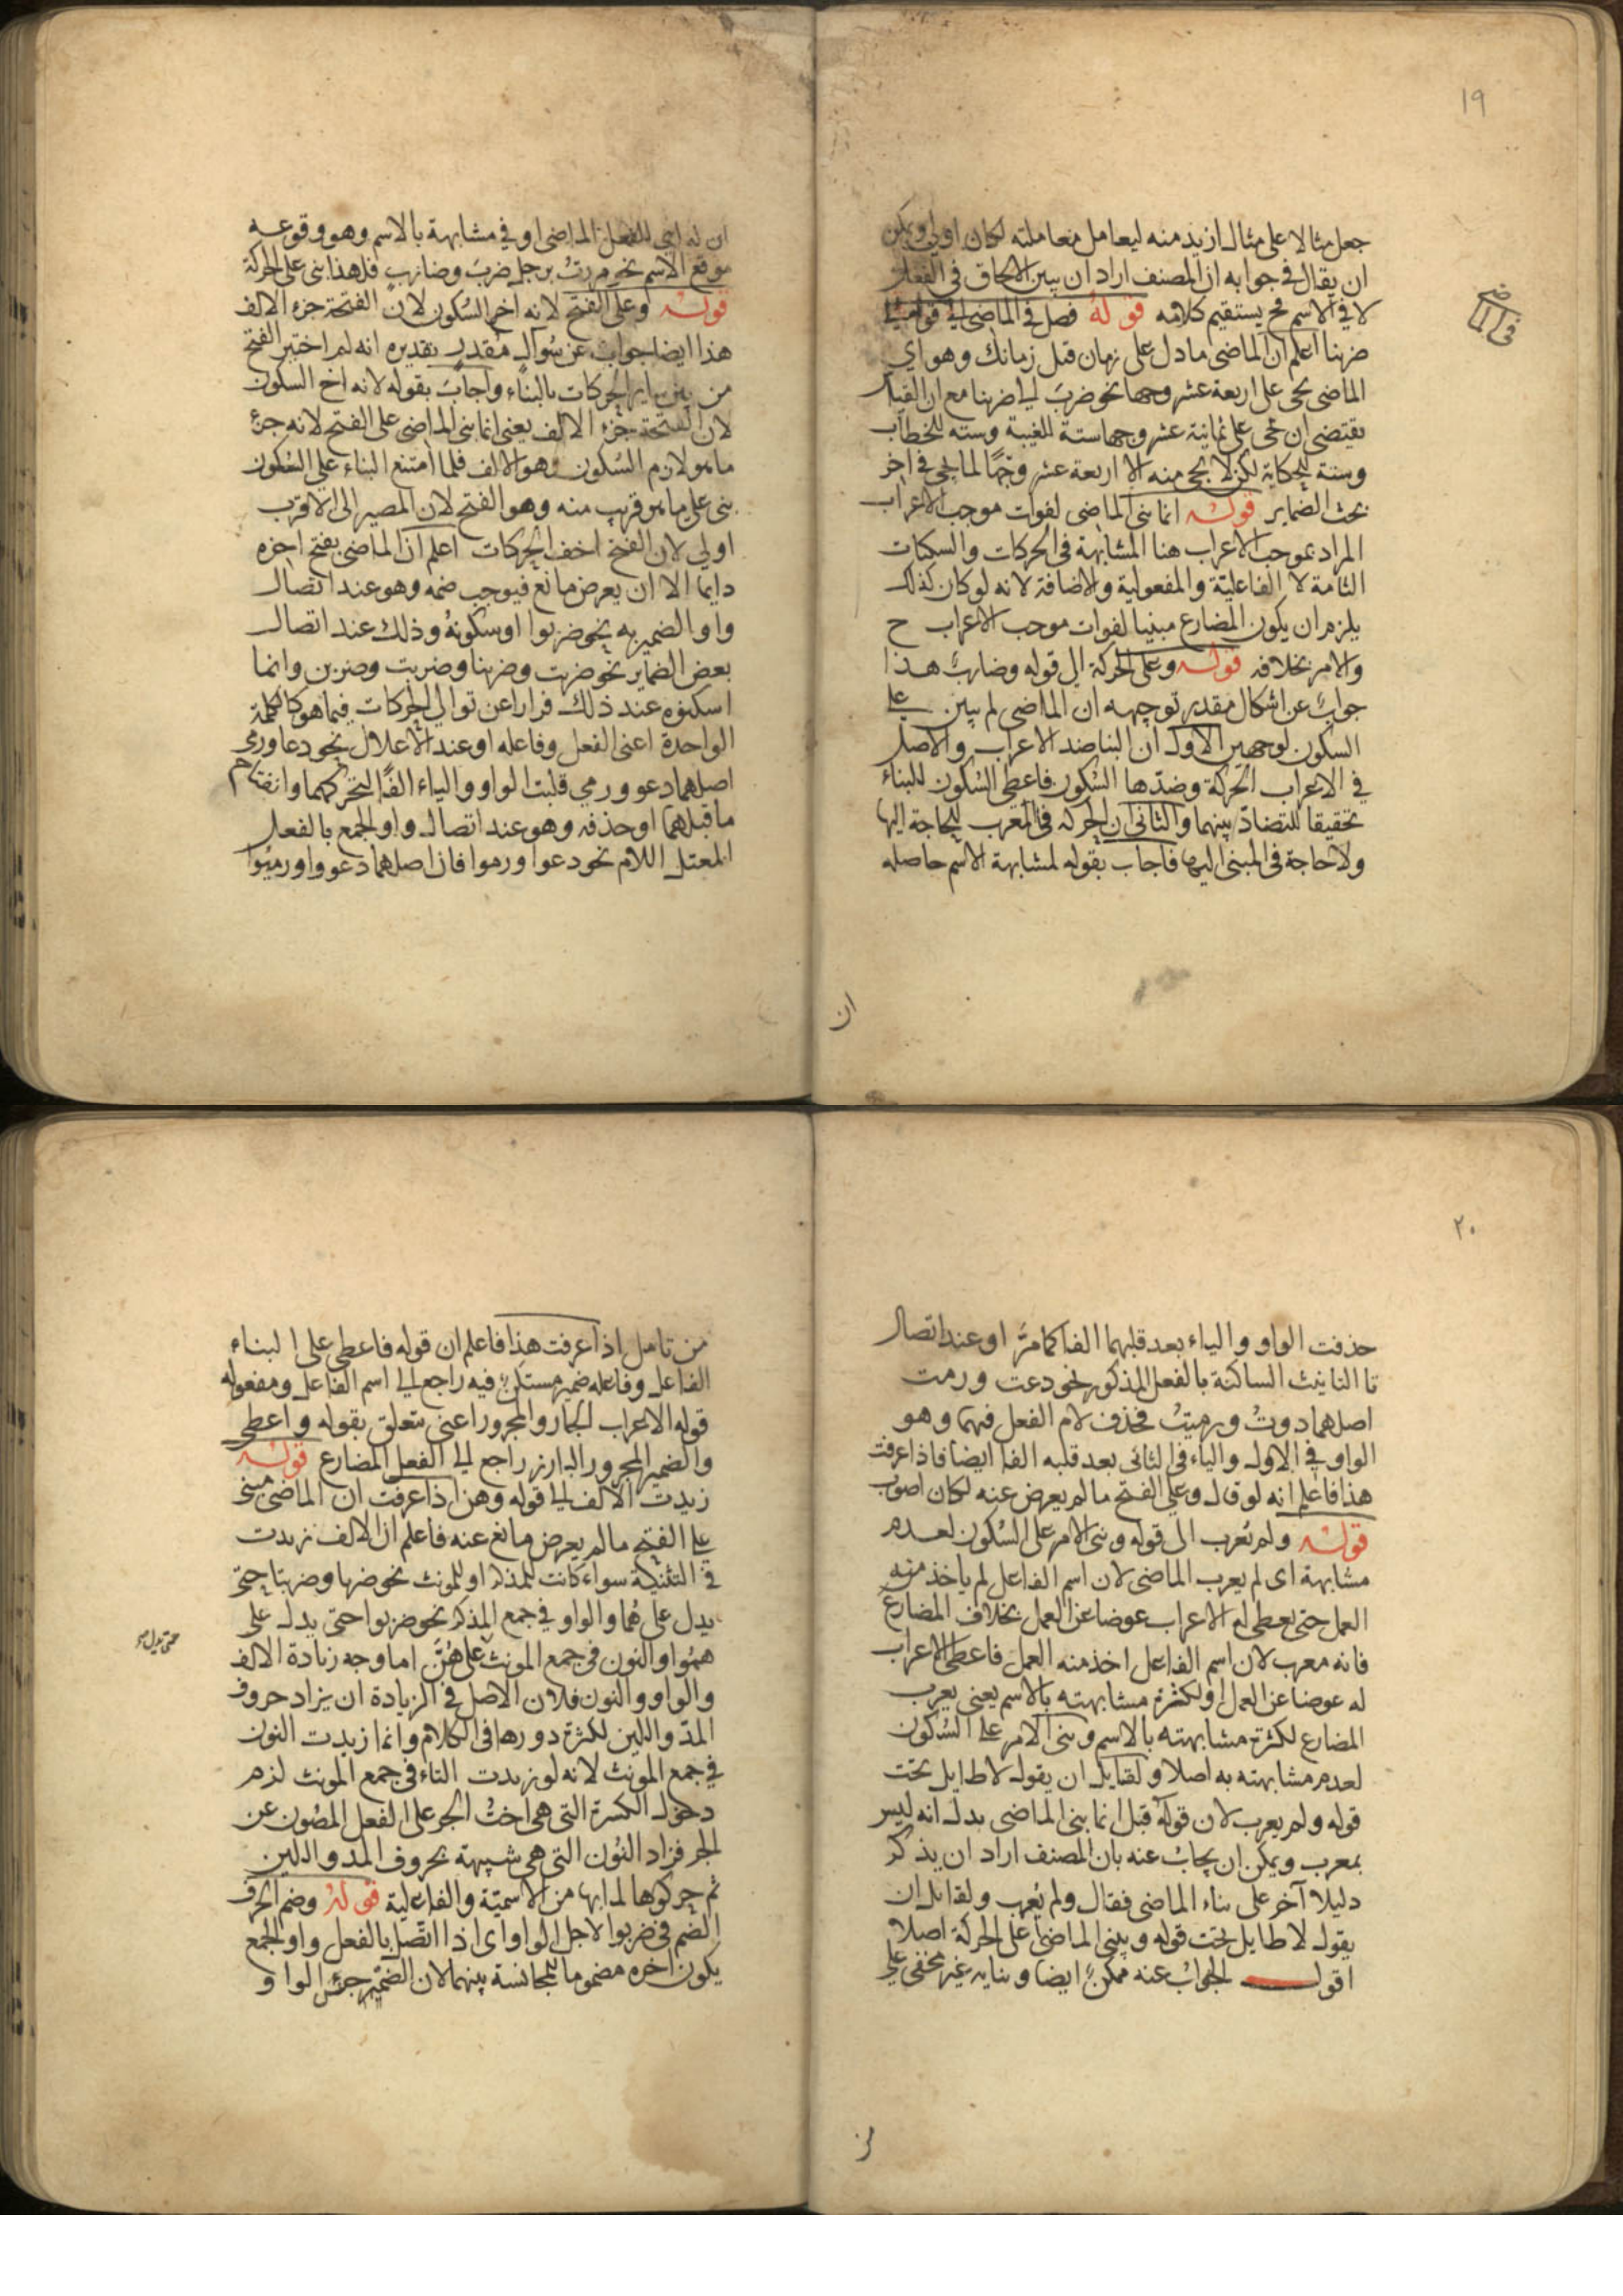 ١٩
جعل مثالا على مثال ازيد منه ليعامل معاملته لكان اولى ويمكن
ان يقال فى جوابه ان المصنف اراد ان يبين الالحاق فى الفعل
لا فى الاسم فح يستقيم كلامه قوله فصل فى الماضى الى قوله
فى الماضى
ضربنا اعلم ان الماضى مادل على زمان قبل زمانك وهو اى
الماضى يجى على اربعة عشر وجها نحو ضرب الى ضربنا مع ان القياس
يقتضى ان يجى على ثمانية عشر وجها ستة للغيبة وستة للخطاب
وستة للحكاية لكن لا يجى منه الا اربعة عشر وجها لما يجى فى اخر
بحث الضماير قوله انما بنى الماضى لفوات موجب الاعراب
المراد بموجب الاعراب هنا المشابهة فى الحركات والسكنات
التامة لا الفاعلية والمفعولية والاضافة لانه لو كان كذلك
يلزم ان يكون المضارع مبنيا لفوات موجب الاعراب ح
والامر بخلافه قوله وعلى الحركة الى قوله وضارب هذا
جواب عن اشكال مقدر توجيهه ان الماضى لم يبن على
السكون لوجهين الاول ان البنا ضد الاعراب والاصل
فى الاعراب الحركة وضدها السكون فاعطى السكون للبناء
تحقيقا للتضاد بينهما والثانى ان الحركة فى المعرب للحاجة اليها
ولا حاجة فى المبنى اليها فاجاب بقوله لمشابهة الاسم حاصله
ان
ان له اى للفعل الماضى او فى مشابهة بالاسم وهو وقوعه
موقع الاسم نحو مررت برجل ضرب وضارب فلهذا بنى على الحركة
قوله وعلى الفتح لانه اخو السكون لان الفتحة جزء الالف
هذا ايضا جواب عن سؤال مقدر تقديره انه لم اختير الفتح
من بين ساير الحركات بالبناء واجاب بقوله لانه اخ السكون
لان الفتحة جزء الالف يعنى انما بنى الماضى على الفتح لانه جزء
ما هو لازم السكون وهو الالف فلما امتنع البناء على السكون
بنى على ما هو قريب منه وهو الفتح لان المصير الى الاقرب
اولى لان الفتح اخف الحركات اعلم ان الماضى يفتح اخره
دايما الا ان يعرض مانع فيوجب ضمه وهو عند اتصال
واو الضمير به نحو ضربوا او سكونه وذلك عند اتصال
بعض الضماير نحو ضربت وضربنا وضربت وضربن وانما
اسكنوه عند ذلك فرارا عن توالى الحركات فيما هو كالكلمة
الواحدة اعنى الفعل وفاعله او عند الاعلال نحو دعا ورمى
اصلهما دعو ورمى قلبت الواو والياء الفا لتحركهما وانفتاح
ما قبلهما او حذفه وهو عند اتصال واو الجمع بالفعل
المعتل اللام نحو دعوا ورموا فان اصلهما دعووا ورميوا
٢٠
حذفت الواو والياء بعد قلبهما الفا كما مر او عند اتصال
تا التانيث الساكنة بالفعل المذكور نحو دعت ورمت
اصلهما دوت ورميت فحذف لام الفعل فيهما وهو
الواو فى الاول والياء فى الثانى بعد قلبه الفا ايضا فاذا عرفت
هذا فاعلم انه لو قال وعلى الفتح ما لم يعرض عنه لكان اصوب
قوله ولم يعرب الى قوله وبنى الامر على السكون لعدم
مشابهة اى لم يعرب الماضى لان اسم الفاعل لم ياخذ منه
العمل حتى يعطى له الاعراب عوضا عن العمل بخلاف المضارع
فانه معرب لان اسم الفاعل اخذ منه العمل فاعطى الاعراب
له عوضا عن العمل او لكثرة مشابهته بالاسم يعنى يعرب
المضارع لكثرة مشابهته بالاسم وبنى الامر على السكون
لعدم مشابهته به اصلا ولقايل ان يقول لا طايل تحت
قوله ولم يعرب لان قوله قبل انما بنى الماضى يدل انه ليس
بمعرب ويمكن ان يجاب عنه بان المصنف اراد ان يذكر
دليلا آخر على بناء الماضى فقال ولم يعرب ولقايل ان
يقول لا طايل تحت قوله وبنى الماضى على الحركة اصلا
اقول الجواب عنه ممكن ايضا وبنايه غير مخفى على
من
من تامل اذا عرفت هذا فاعلم ان قوله فاعطى على البناء
الفاعل وفاعله ضمير مستكن فيه راجع الى اسم الفاعل ومفعوله
قوله الاعراب الجار والمجرور اعنى متعلق بقوله واعطى
والضمير المجرور البارز راجع الى الفعل المضارع قوله
زيدت الالف الى قوله وهن اذا عرفت ان الماضى مبنى
على الفتح ما لم يعرض مانع عنه فاعلم ان الالف زيدت
فى التثنية سواء كانت للمذكر او للمونث نحو ضربا وضربتا حتى
يدل على هما والواو فى جمع المذكر نحو ضربوا حتى يدل على
حتى يدل
همو والنون فى جمع المونث على هن اما وجه زيادة الالف
والواو والنون فلان الاصل فى الزيادة ان يزاد حروف
المد واللين لكثرة دورها فى الكلام وانما زيدت النون
فى جمع المونث لانه لو زيدت التاء فى جمع المونث لزم
دخول الكسرة التى هى اخت الجر على الفعل المصون عن
الجر فزاد النون التى هى شبيهة بحروف المد واللين
ثم حركوها لما بها من الاسمية والفاعلية قوله وضم الحرف
الضم فى ضربوا لاجل الواو اى اذا اتصل بالفعل واو الجمع
يكون اخره مضموما للمجانسة بينهما لان الضم جزء الواو و